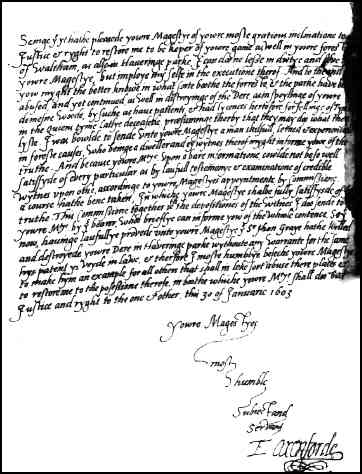 Seinge yt yt hathe pleasede youre Magestye of youre moste gratious inclinatione to
Justice & ryght to restore me to be keper of youre game as well in youre forest
of Waltham, as allso in Haveringe parke I can doo no lesse in dutye and love to
youre Magestye, but imploye my selfe in the executione therof. And to the end
you myght the better knowe in what sorte bothe the forest & the parke have been
abused, and yet continued as well in distroyinge of the Dere as in spoylinge of youre
demesne woode, by suche as have patents, & had lycences heretofore for fellinge of Tymber
in the queens tyme Latlye deceased, presuminge therby that they may doo what they
lyste. I was boulde to sende unto youre Magestye a man skillful, lerned & experienced
in foreste causes, who beinge a dweller and ey wytnes therof myght informe youe of the
truthe. And because youre Mtye upon a bare informatione could not be so well
satisfyede of every particular as by laufull testemonye & examinatione of credible
wytnes upon othe, accordinge to youre Magestyes appoyntmente by commissione
a course hathe bene taken, In whiche youre Magestye shalbe fully satisfyede of the
truthe. This commissione together with the depositiones of the witnes I doo sende to
youre Mty by this bearer, whoo brieflye can informe you of the whole contents. Soo
now, havinge laufullye proveded unto youre Magestye that Sr Jhon Graye hathe killed
and destroyede youre Dere in Haveringe parke wythoute any warrante for the same
hys patent ys voyde in lawe, & therfore I moste humblye beseche youre Magestye
To make hym an example for all others that shall in like sort abuse there places &
to restore me to the possessione therof. In bothe whiche youre Mtye shall doo but
Justice and ryght to the one & other. this 30 of Januarie 1603
Youre Magestyes
moste
humble
Subject and
Servant
E. Oxenforde